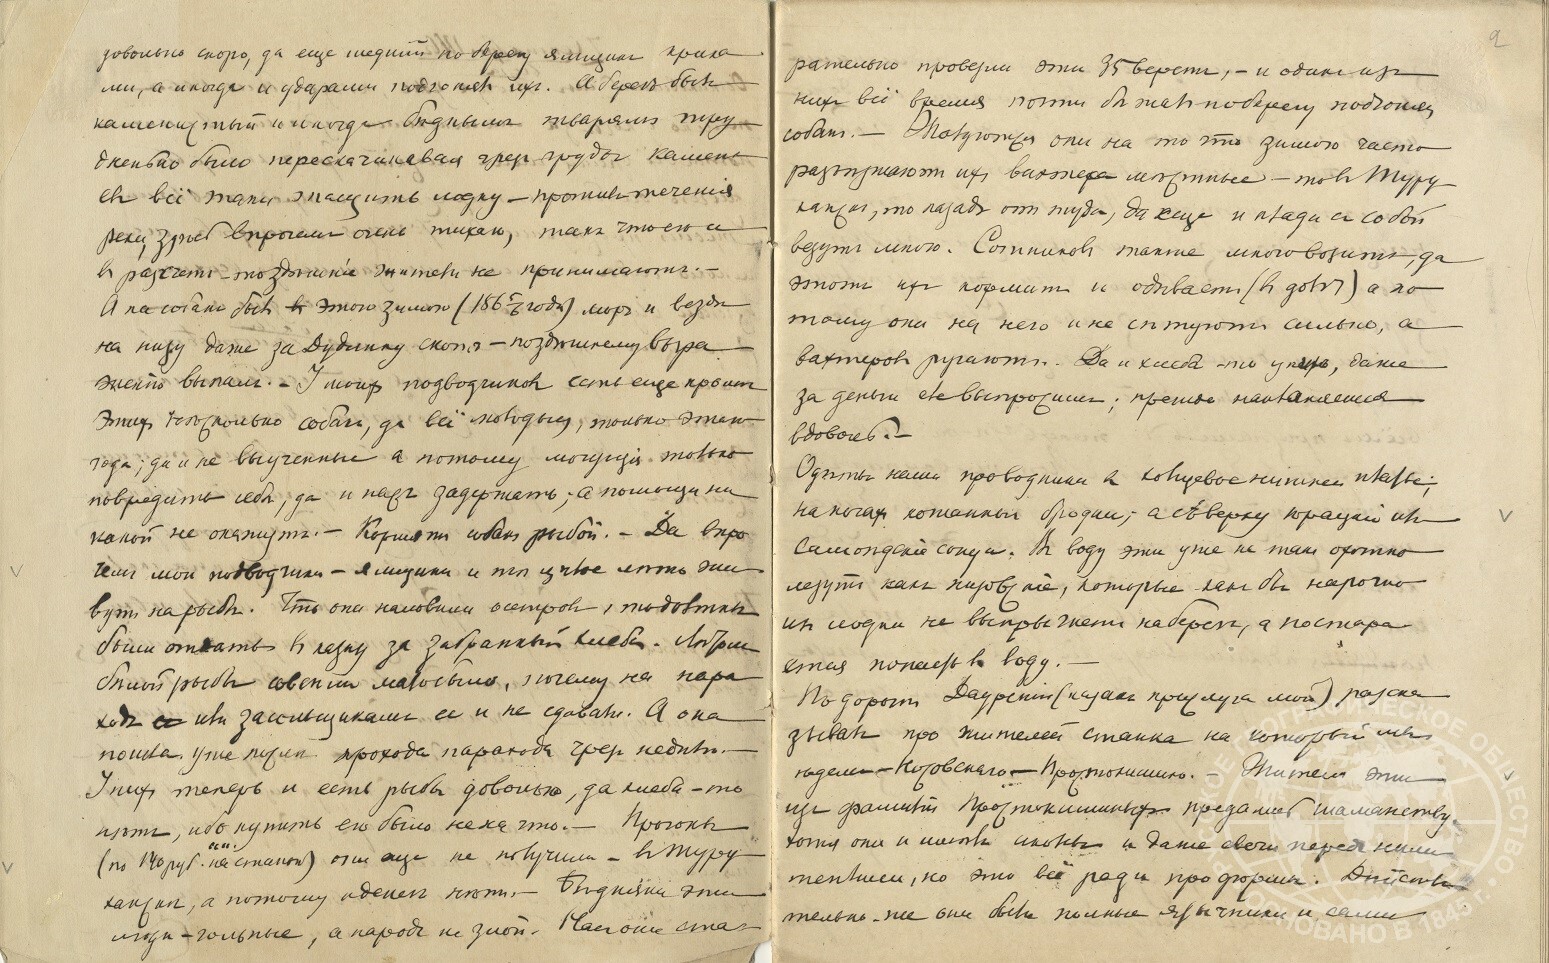 довольно скоро, да еще шедшiй по берегу ямщикъ крика
ми, а иногда и ударами подгонялъ ихъ. А берегъ былъ
каменистый и иногда бѣднымъ тварямъ тру
дненько было перескачивая чрезъ груды камень
евъ всё таки тащить лодку – противъ теченiя
рѣки, здѣсь впрочемъ очень тихаго, такъ что его и
въ разсчетъ тоздѣшнiе жители не принимаютъ. –
А на собакъ былъ этою зимою (186 года) моръ и вездѣ
на низу даже за Дудинку скотъ – поздѣшнему выра
женiю выпалъ. – У моихъ подводчиковъ есть еще кромѣ
этихъ нѣсколько собакъ, да всё молодыя, только этого
года; да и не выученные а потому могущiя только
повредить себѣ, да и насъ задержать; а помощи ни
какой не окажутъ. – Кормятъ собакъ рыбой. – Да впро
чемъ мои подводчики – ямщики и то цѣлое лѣто жи
вутъ на рыбѣ. Что они наловили осетровъ, то должны
были отдать въ казну за забранный хлѣбъ.
бѣлой рыбы совсѣмъ мало было, почему на паро
ходъ или засольщикамъ ее и не сдавали. А она
пошла уже послѣ прохода парохода чрезъ недѣлю. –
У нихъ теперь и есть рыбы довольно, да хлѣба – то
нѣтъ, ибо купить его было не на что. – Прогоны
(по руб. "на станокъ") они еще не получили – въ Туру
ханскѣ, а потому и денегъ нѣтъ. – Бѣдняки эти
люди – голышные, а народъ не злой. Насъ они ста
2
рательно провезли эти 35 верстъ, – и одинъ изъ
нихъ всё время почти бѣжалъ по берегу подгоняя
собакъ. – Жалуются они на то что зимою часто
разъѣзжаютъ ихъ вахтера мѣстные – то въ Туру
ханскъ, то назадъ оттуда, да еще и клади съ собой
везутъ много. Сотниковъ также много возитъ, да
этотъ ихъ кормитъ и одѣваетъ (въ долгъ) а по
тому они на него и не сѣтуютъ сильно, а
вахтеровъ ругаютъ. Да и хлѣба – то у нихъ, даже
за деньги не выпросишь; прежде накланяешься
вдоволь. –
Одѣты наши проводники въ платье;
на ногахъ кожанныя бродни; а сверху юрацкiй или
Самоѣдскiй сокуй. Въ воду эти уже не такъ охотно
лезутъ какъ низовскiе, которые какъ бы нарочно
изъ лодки не выпрыгнетъ на берегъ, а постара
ется попасть въ воду. –
По дорогѣ Даурскiй (казакъ прислуга мой) разска
зывалъ про жителей станка на который мы
ѣдемъ – Костовскаго – Простокишино. – Жители эти
изъ фамилiи Простокишиныхъ преданы шаманству,
хотя они и имѣютъ иконы и даже свечи передъ ними
теплили, но это всё ради проформы. Дѣйстви
тельно-же они были полные язычники и сами
РУССКОЕ ГЕОГРАФИЧЕСКОЕ ОБЩЕСТВО • ОСНОВАНО В 1845 г. •